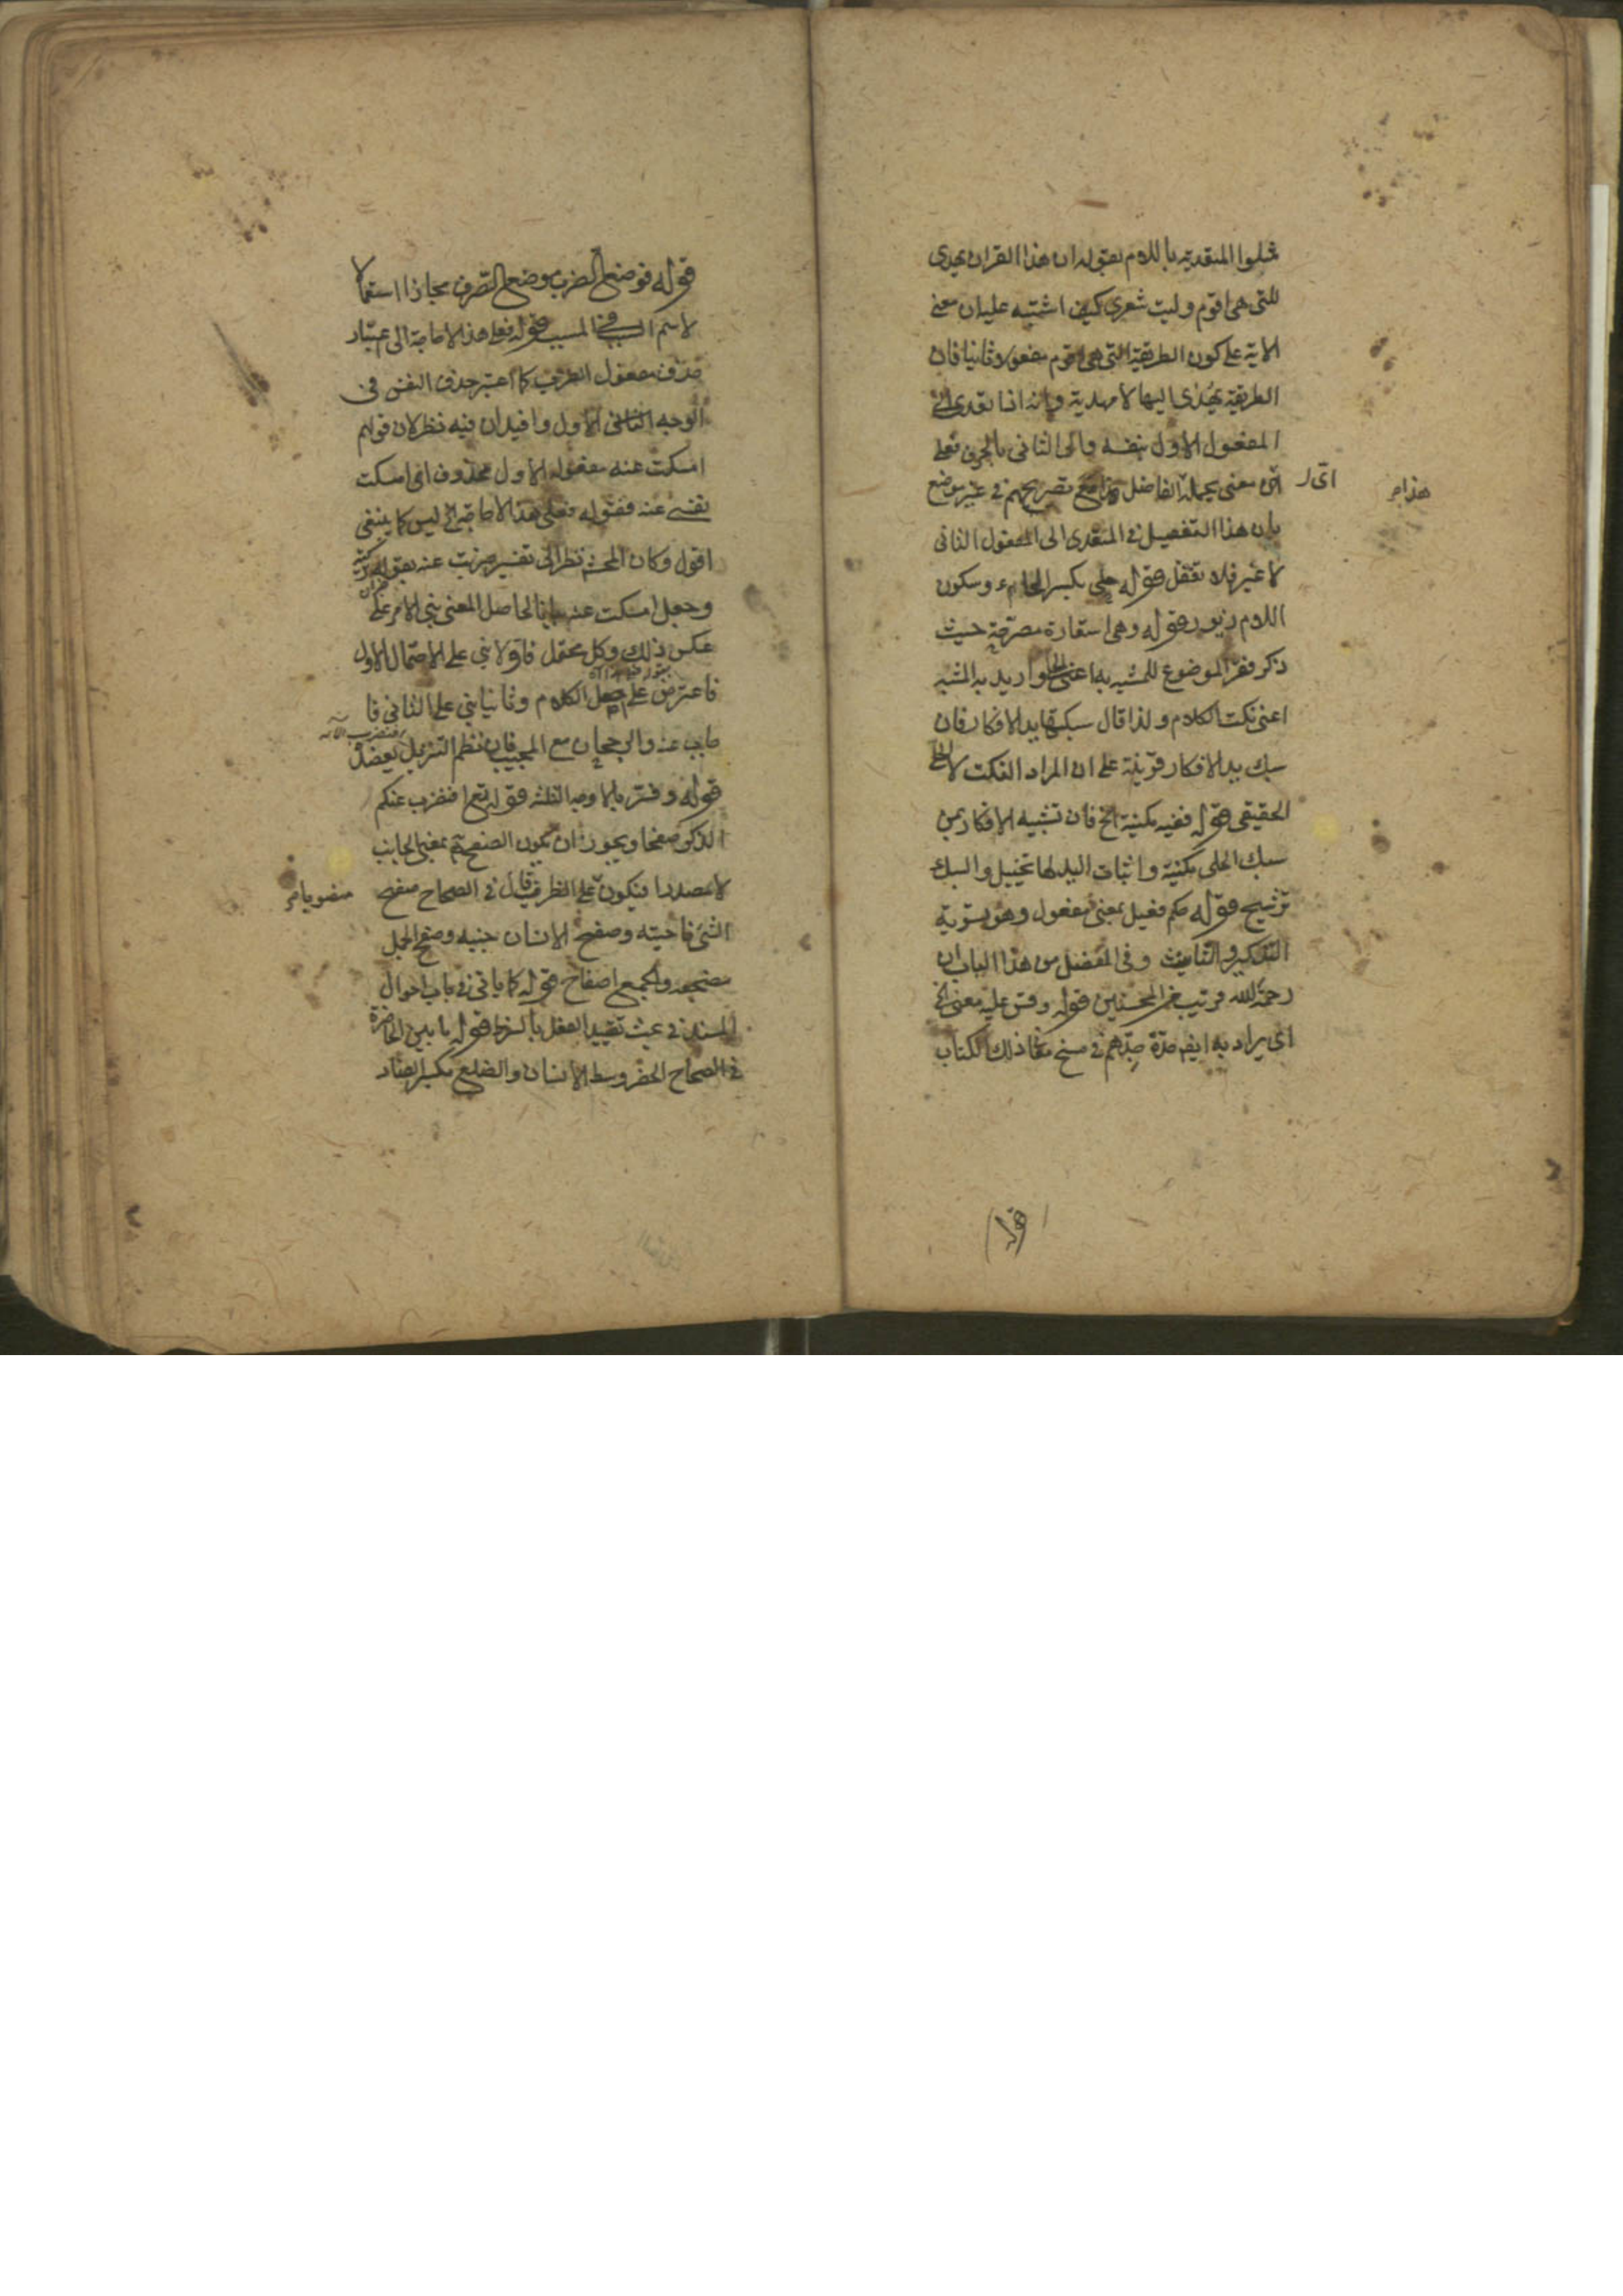 مثلوا المتعدية باللام بقوله ان هذا القران يهدى
للتى هى اقوم وليت شعرى كيف اشتبه عليه ان معنى
الاية على كون الطريقة التى هى اقوم مفعولا ثانيا فان
الطريقة يهدى اليها لا مهدية وانه انما تعدى الى
المفعول الاول بنفسه والى الثانى بالحرف فعلى
اى معنى يحمله الفاضل مع تصريحهم فى غير موضع
اى ر
هذا م
بان هذا التفصيل فى المتعدى الى المفعول الثانى
لا غير فلا تغفل قوله حلى بكسر الحاء وسكون
اللام زيور قوله وهى استعارة مصرحة حيث
ذكر لفظ الموضوع للمشبه به اعنى الحلى واريد به المشبه
اعنى نكت الكلام ولذا قال سبكتها يد الافكار فان
سبك يد الافكار قرينة على ان المراد النكت لا الحلى
الحقيقى قوله ففيه مكنية الخ فان تشبيه الافكار بمن
سبك الحلى مكنية واثبات اليد لها تخييل والسبك
ترشيح قوله فعيل بمعنى مفعول وهو يستوى فيه
التذكير والتانيث وفى المفصل من هذا الباب ان
رحمة الله قريب من المحسنين قوله وقس عليه معنى الخ
اى يراد به ايضا مدة فى نسخ ذلك الكتاب
قوله
قوله فوضع الضرب موضع الصرف مجازا استعمالا
لاسم السبب فى المسبب قوله فعلى هذا لا حاجة الى اعتبار
حذف مفعول الضرب كما اعتبر حذف النفس فى
الوجه الاول وافيد ان فيه نظر لان قولهم
امسكت عنه مفعوله الاول محذوف اى امسكت
نفسى عنه فقوله فعلى هذا لا حاجة الخ ليس كما ينبغى
اقول وكان المحشى نظر الى تفسير ضربت عنه بقوله تركته
وجعل امسكت عنه بيانا لحاصل المعنى بنى الامر على
عكس ذلك وكل محتمل فاولا بنى على الاحتمال الاول
فاعترض على الكلام وثانيا بنى على الثانى فا
جاب عنه والرجحان مع المجيب فان نظم التنزيل يعضده
افنضرب الآية
قوله وفسر بالاوجه الثلثة قوله تعالى افنضرب عنكم
الذكر صفحا ويجوز ان يكون الصفح ثم بمعنى الجانب
لا مصدرا فيكون على الظرف قال فى الصحاح صفح
منصوبا م
الشئ ناحيته وصفح الانسان جنبه وصفح الجبل
مضجعه والجمع اصفاح قوله كما ياتى فى باب احوال
المسند فى بحث تقييد الفعل بالشرط قوله ما بين الخاصرة
فى الصحاح الخصر وسط الانسان والضلع بكسر الضاد